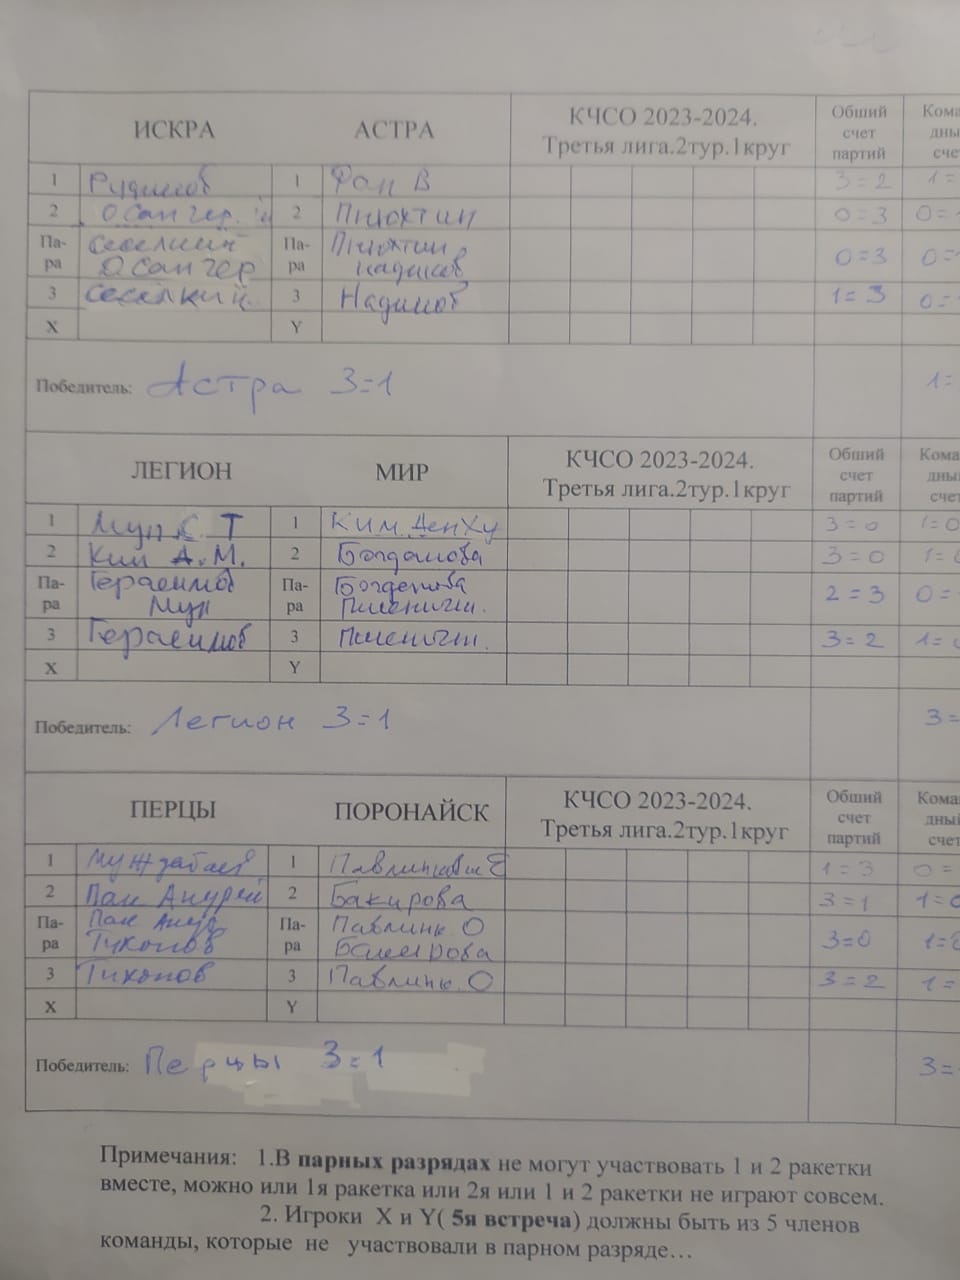 ИСКРА АСТРА КЧСО 2023-2024. Общий Кома
Третья лига.2тур.1круг счет дны
партий сче
1 Рудинов 1 Фан В 3=2 1=
2 Осанчер 2 Пнюхтин 0=3 0=
Па- Сеселкин Па- Пнюхтин 0=3 0=
ра Осанчер ра Надинов
3 Сеселкий 3 Надинов 1=3 0=
X Y
Победитель: Астра 3=1 1=
ЛЕГИОН МИР КЧСО 2023-2024. Общий Кома
Третья лига.2тур.1круг счет дны
партий счет
1 Мун С. Т 1 Ким Ден Ху 3=0 1=0
2 Ким А.М. 2 Богданова 3=0 1=
Па- Герасимов Па- Богданова 2=3 0=
ра Мун ра Пшеничн.
3 Герасимов 3 Пшеничн. 3=2 1=
X Y
Победитель: Легион 3=1 3=
ПЕРЦЫ ПОРОНАЙСК КЧСО 2023-2024. Общий Кома
Третья лига.2тур.1круг счет дны
партий счет
1 Муждабаев 1 Е 1=3 0=
2 Пак Андрей 2 Бакирова 3=1 1=0
Па- Пак Андр Па- Павлинк О 3=0 1=
ра Тихонов ра Бакирова
3 Тихонов 3 Павлинк. О 3=2 1=
X Y
Победитель: Перцы 3=1 3=
Примечания: 1.В парных разрядах не могут участвовать 1 и 2 ракетки
вместе, можно или 1я ракетка или 2я или 1 и 2 ракетки не играют совсем.
2. Игроки X и Y( 5я встреча) должны быть из 5 членов
команды, которые не участвовали в парном разряде…